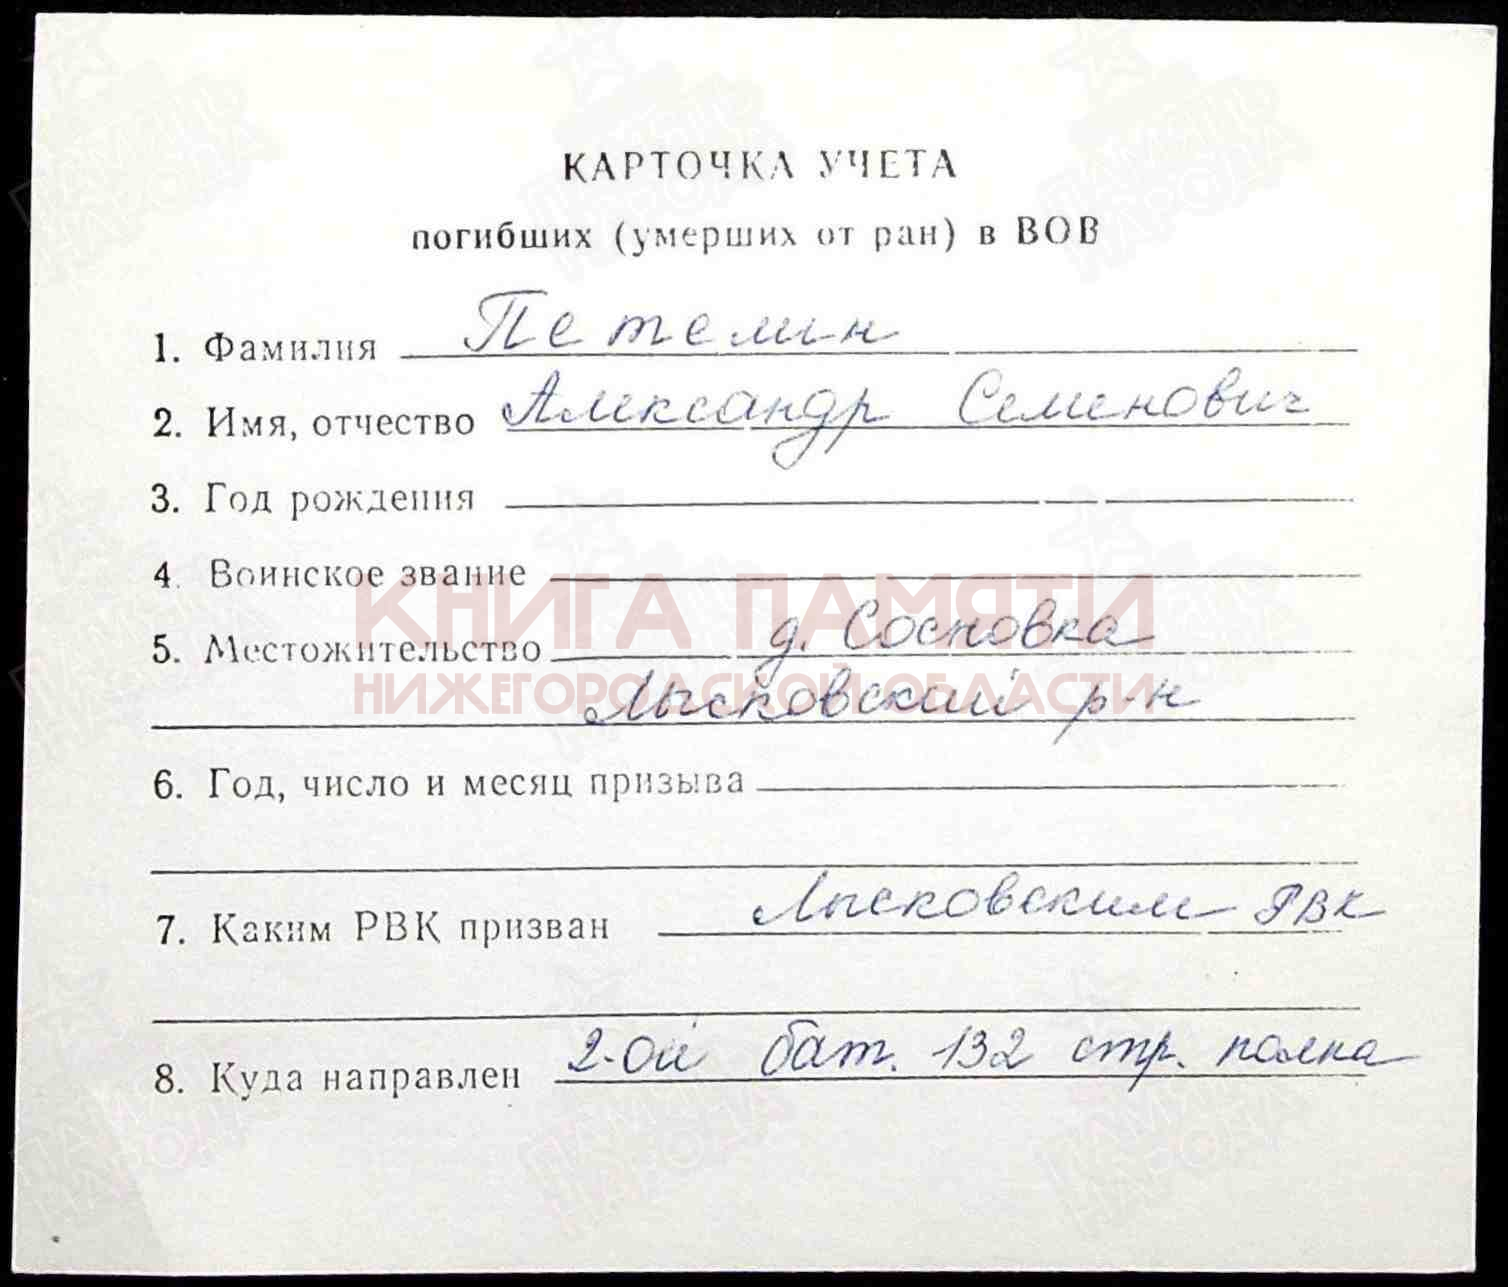 КАРТОЧКА УЧЕТА
погибших (умерших от ран) в ВОВ
1. Фамилия Петелин
2. Имя, отчество Александр Семенович
3. Год рождения
4. Воинское звание
КНИГА ПАМЯТИ
5. Местожительство д. Сосновка
НИЖЕГОРОДСКОЙ ОБЛАСТИ
Лысковский р-н
6. Год, число и месяц призыва
7. Каким РВК призван Лысковским РВК
8. Куда направлен 2-ой бат. 132 стр. полка